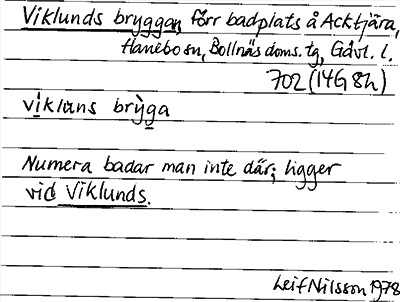 Viklunds bryggan, förr badplats å Acktjära,
Hanebo sn, Bollnäs doms. tg, Gävl. l.
702 (14G 8h)
viklüns brỳga
Numera badar man inte där; ligger
vid Viklunds.
Leif Nilsson 1978